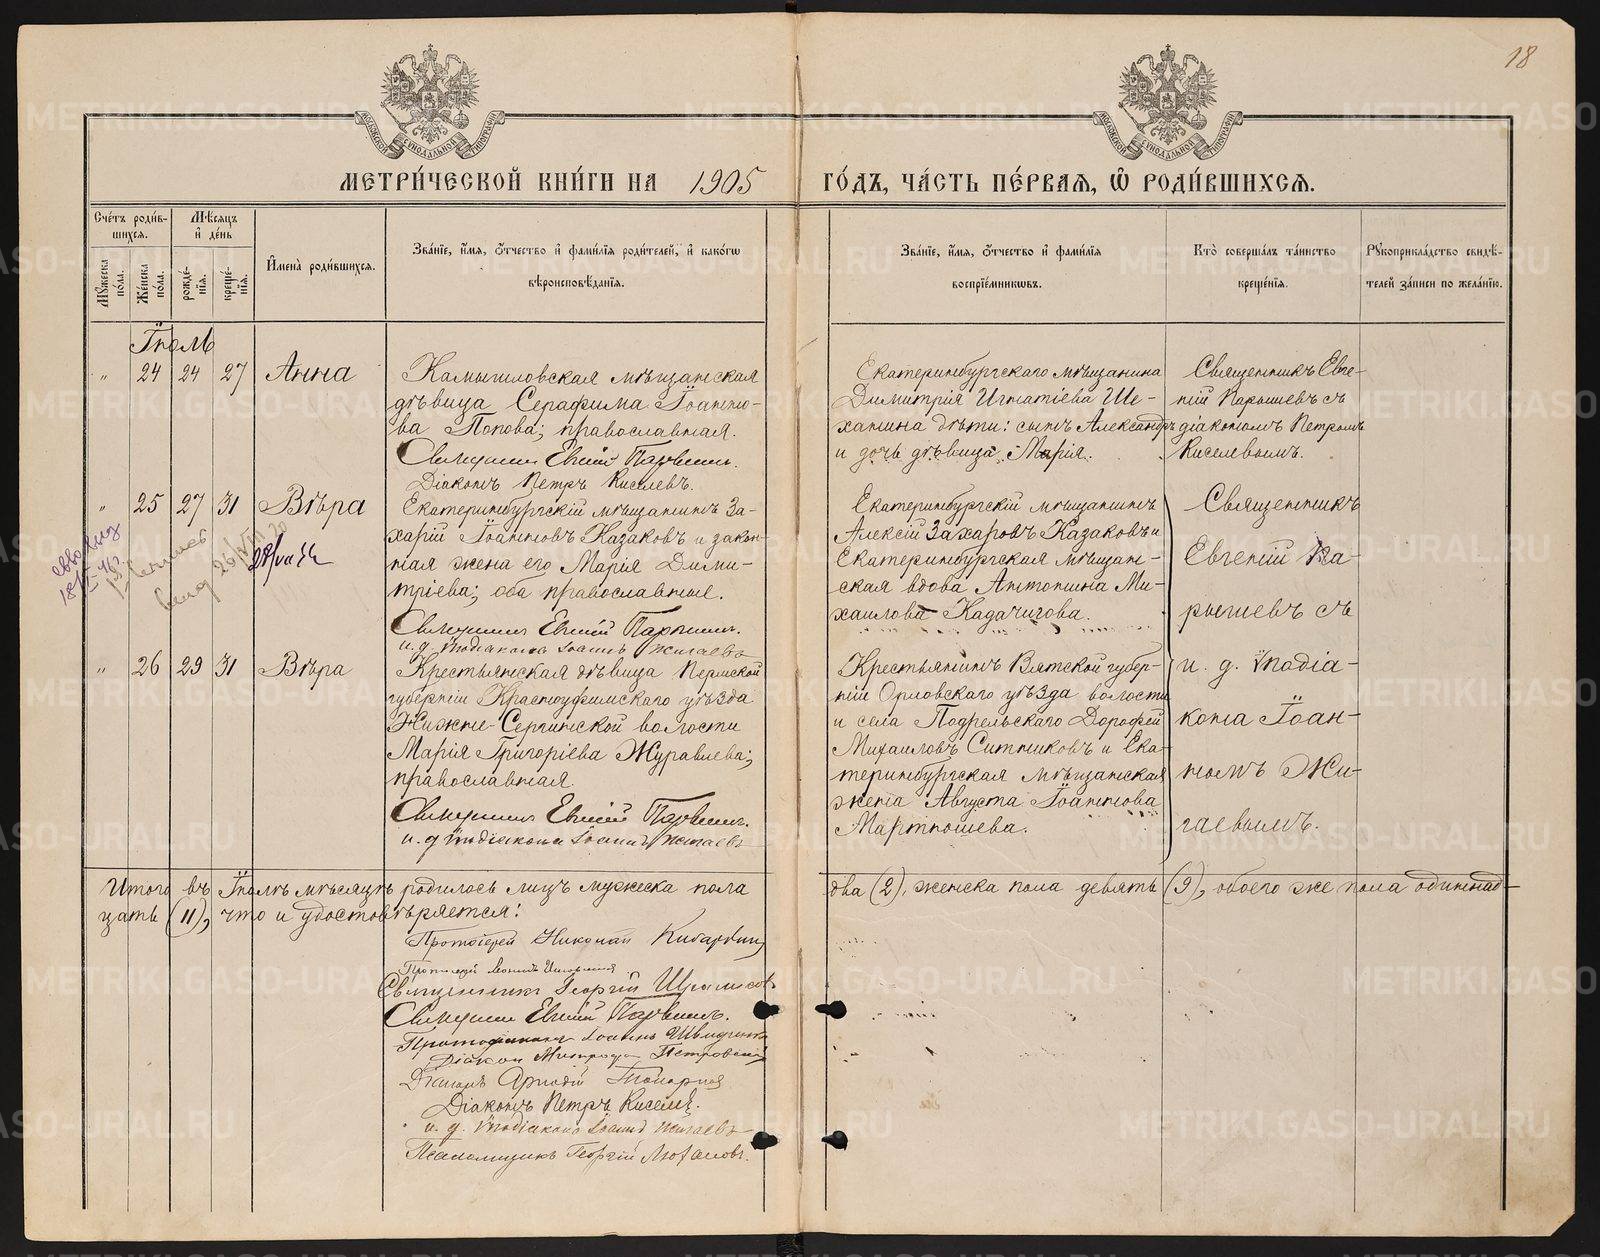 18
МЕТРИ́ЧЕСКОЙ КНИ́ГИ НА 1905 ГО́ДЪ, ЧА́СТЬ ПЕ́РВАЯ, Ѡ҆ РОДИ́ВШИХСѦ.
Сче́тъ роди́в-
шихсѧ.
Мѣ́сѧцъ
и҆ де́нь
Мꙋ́жеска по́ла.
Же́нска по́ла.
рожде́-
нїѧ.
креще́-
нїѧ.
И҆мена̀ роди́вшихсѧ.
Зва́нїе, и҆́мѧ, ѻ҆́тчество и҆ фами́лїѧ роди́телей, и҆ како́гѡ
вѣроисповѣ́данїѧ.
Зва́нїе, и҆́мѧ, ѻ҆́тчество и҆ фами́лїѧ
воспрїе́мникѡвъ.
Кто̀ соверша́лъ та́инство
креще́нїѧ.
Рꙋкоприкла́дство свидѣ́-
телей за́писи по жела́нїю.
Іюль
" 24 24 27 Анна
Камышловская мѣщанская
дѣвица Серафима Іоанно-
ва Попова; православная.
Священникъ Евгеній Парышевъ.
Діаконъ Петръ Киселевъ.
Екатеринбургскаго мѣщанина
Димитрія Игнатіева Ше-
ханина дѣти: сынъ Александръ
и дочь дѣвица Марія.
Священникъ Евге-
ній Парышевъ съ
діакономъ Петромъ
Киселевымъ.
" 25 27 31 Вѣра
Екатеринбургскій мѣщанинъ За-
харій Іоанновъ Казаковъ и закон-
ная жена его Марія Дими-
тріева; оба православные.
Священникъ Евгеній Парышевъ.
и. д. псодіакона Іоаннъ Жигаевъ
Екатеринбургскій мѣщанинъ
Алексій Захаровъ Казаковъ и
Екатеринбургская мѣщан-
ская вдова Антонина Ми-
хаилова Кадачигова.
" 26 29 31 Вѣра
Крестьянская дѣвица Пермской
губерніи Красноуфимскаго уѣзда
Нижне-Сергинской волости
Марія Григоріева Журавлева;
православная.
Священникъ Евгеній Парышевъ.
Крестьянинъ Вятской губер-
ніи Орловскаго уѣзда волости
и села Подрельскаго Дорофей
Михаиловъ Ситниковъ и Ека-
теринбургская мѣщанская
жена Августа Іоаннова
Мартюшева.
Священникъ
Евгеній Па-
рышевъ съ
и. д. псодіа-
кона Іоан-
номъ Жи-
гаевымъ.
Итого въ Іюлѣ мѣсяцѣ родилось лицъ мужеска пола два (2), женска пола девять (9), обоего же пола одиннад-
цать (11), что и удостовѣряется:
Протоіерей Николай
Священникъ Георгій
Священникъ Евгеній Парышевъ.
Діаконъ Петровскій
Діаконъ
Діаконъ Петръ Киселевъ.
и. д. псодіакона Іоаннъ Жигаевъ
Псаломщикъ Георгій
METRIKI.GASO-URAL.RU